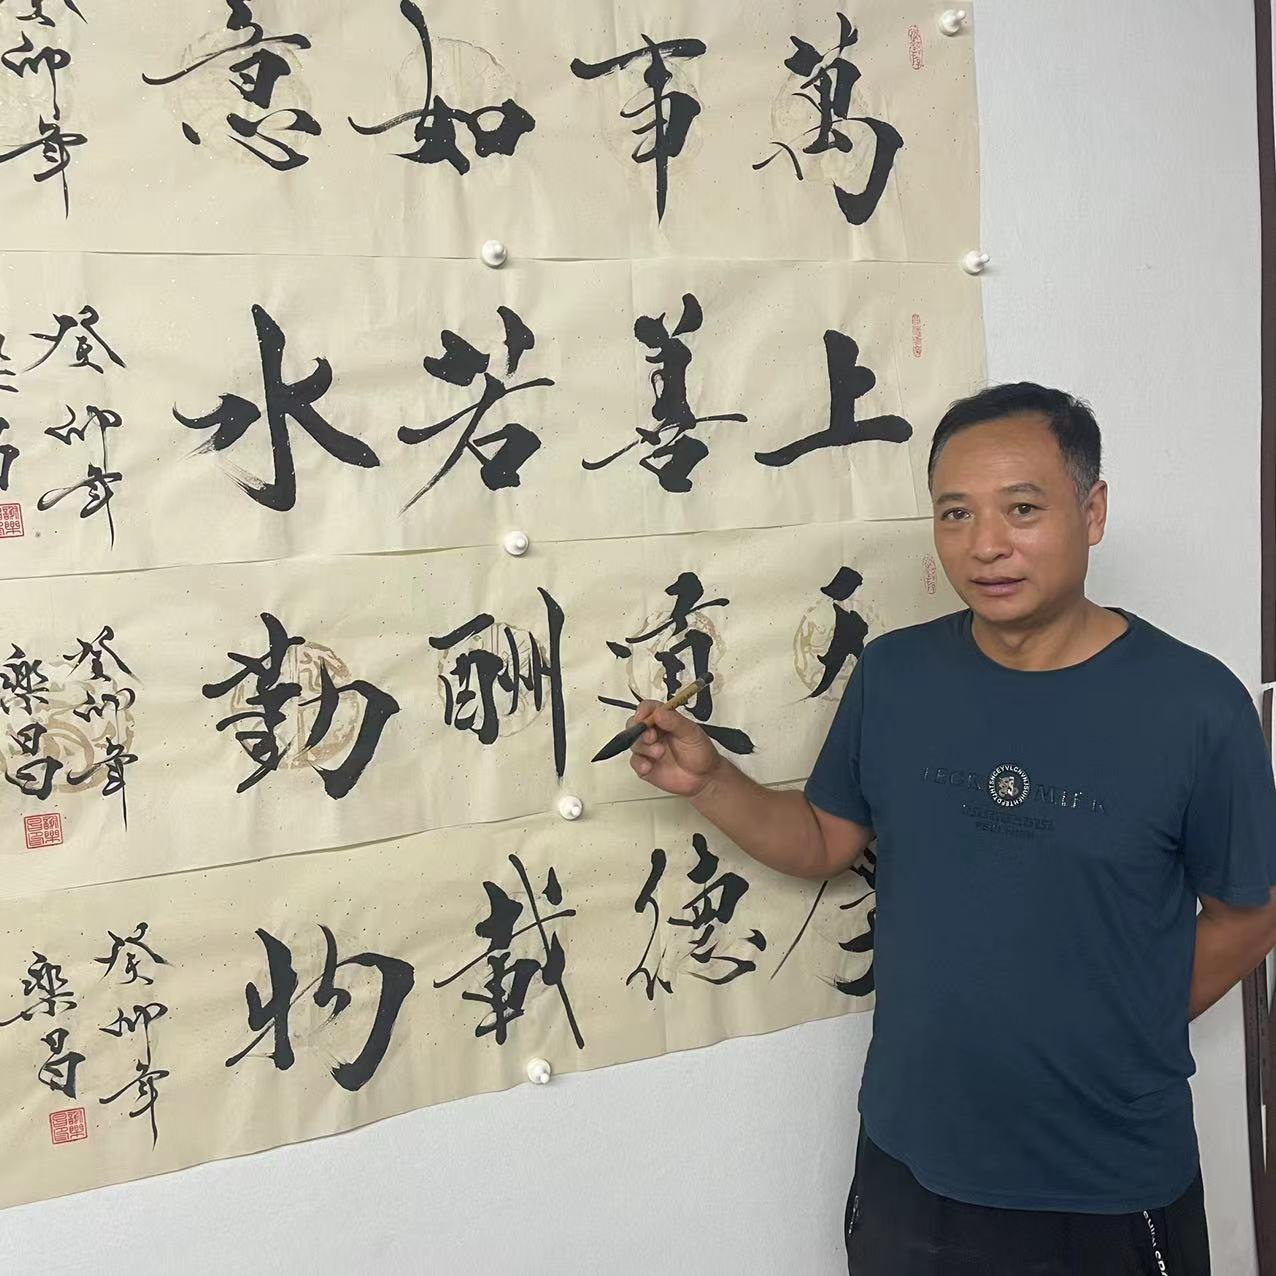 萬事如意
癸卯年
上善若水
癸卯年
天道酬勤
癸卯年
樂昌
厚德載物
癸卯年
樂昌